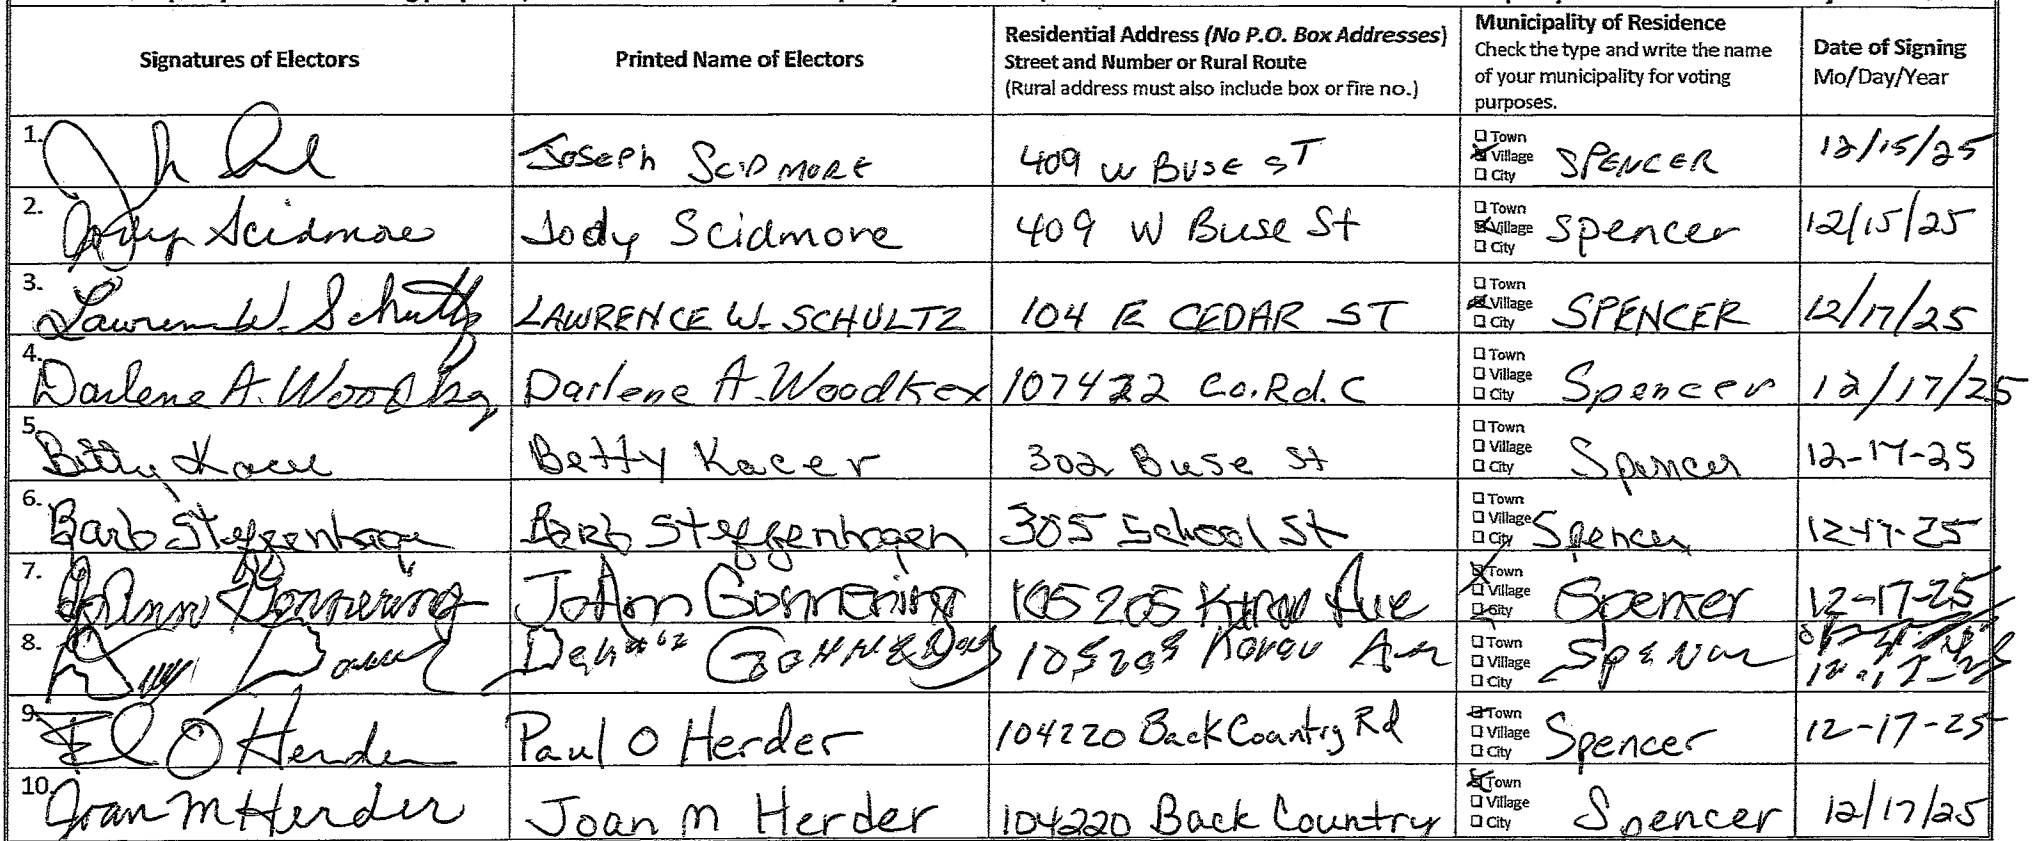 Signatures of Electors
Printed Name of Electors
Residential Address (No P.O. Box Addresses)
Street and Number or Rural Route
(Rural address must also include box or fire no.)
Municipality of Residence
Check the type and write the name
of your municipality for voting
purposes.
Date of Signing
Mo/Day/Year
1. Joseph Scidmore 409 W Buse ST Town Village City SPENCER 12/15/25
2. Jody Scidmore Jody Scidmore 409 W Buse St Town Village City Spencer 12/15/25
3. Lawrence W. Schultz LAWRENCE W. SCHULTZ 104 E CEDAR ST Town Village City SPENCER 12/17/25
4. Darlene A. Darlene A. Woodkey 107422 Co. Rd. C Town Village City Spencer 12/17/25
5. Betty Kacer Betty Kacer 302 Buse St Town Village City Spencer 12-17-25
6. Barb Steffenhagen Barb Steffenhagen 305 School St Town Village City Spencer 12-17-25
7. JoAnn Gonnering JoAnn Gonnering 105205 Town Village City Spencer 12-17-25
8. Town Village City
9. O Herder Paul O Herder 104220 Back Country Rd Town Village City Spencer 12-17-25
10. Joan M Herder Joan M Herder 104220 Back Country Town Village City Spencer 12/17/25